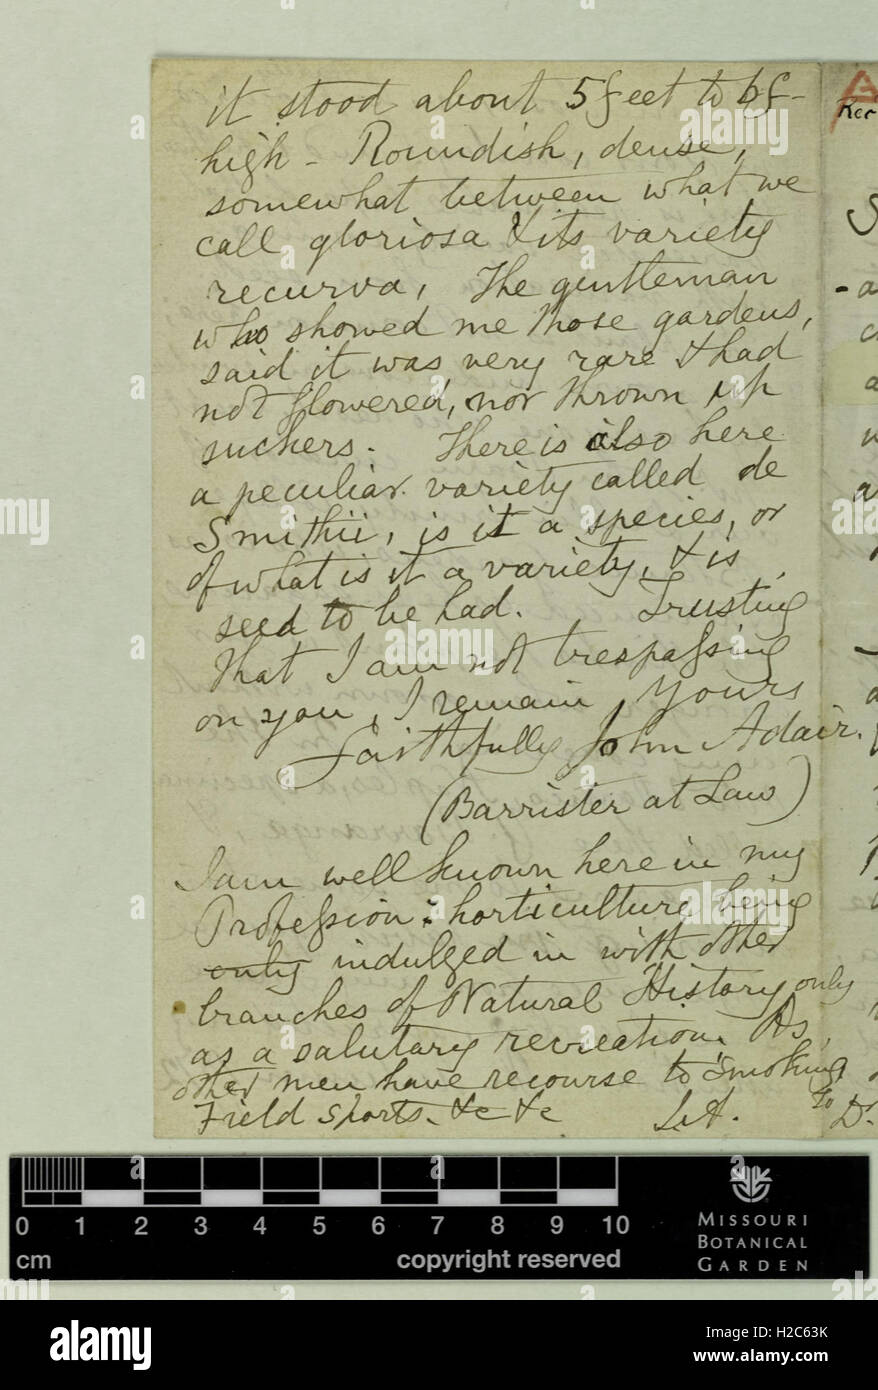 it stood about 5 feet to 6 f-
high - Roundish, dense,
somewhat between what we
call gloriosa & its variety
recurva, The gentleman
who showed me those gardens,
said it was very rare & had
not flowered, nor thrown up
suckers. There is also here
a peculiar variety called de
Smithii, is it a species, or
of what is it a variety, & is
seed to be had. Trusting
that I am not trespassing
on you, I remain Yours
Faithfully John Adair.
(Barrister at Law)
I am well known here in my
Profession: horticulture being
only indulged in with other
branches of Natural History only
as a salutary recreation. As
other men have recourse to Smoking
Field sports. &c &c J.A. To
Rec
D.
0 1 2 3 4 5 6 7 8 9 10
cm copyright reserved
MISSOURI
BOTANICAL
GARDEN
alamy
a
alamy stock photo
H2C63K
www.alamy.com